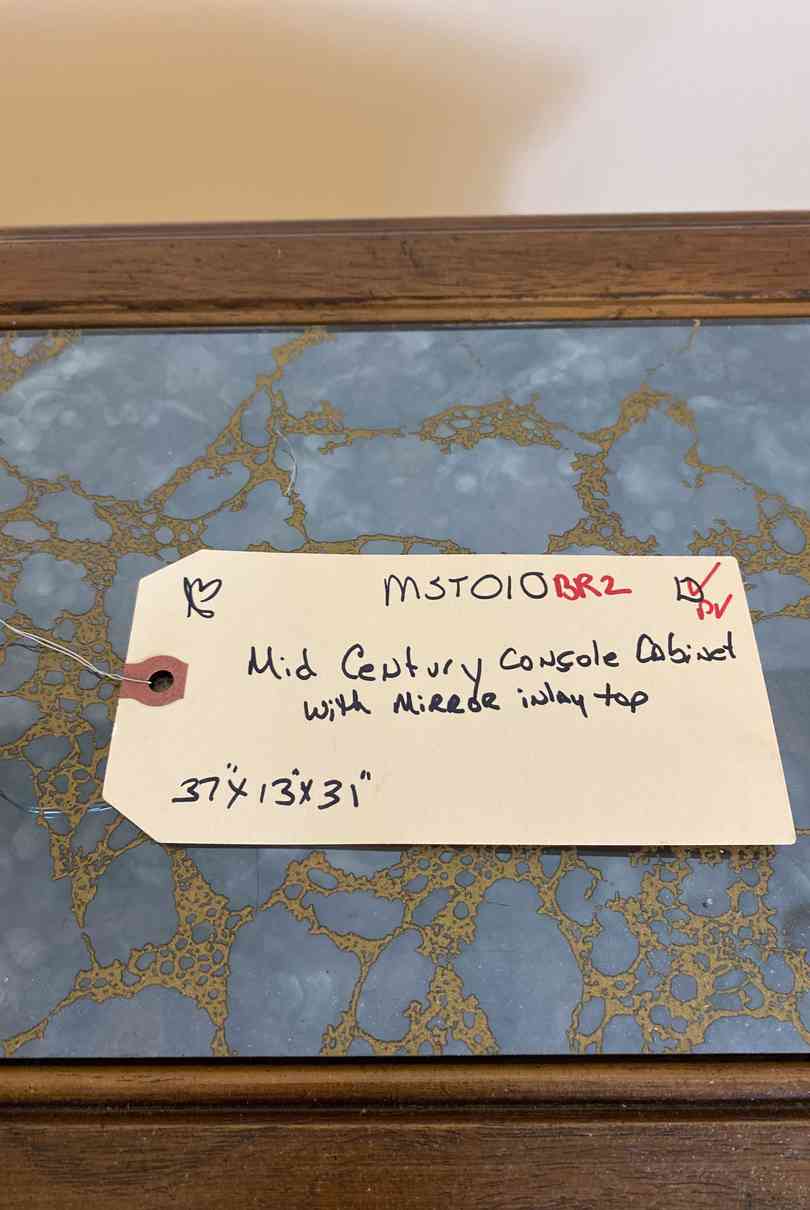 MST010BR2
Mid Century Console Cabinet
with Mirror inlay top
37"x13"x31"